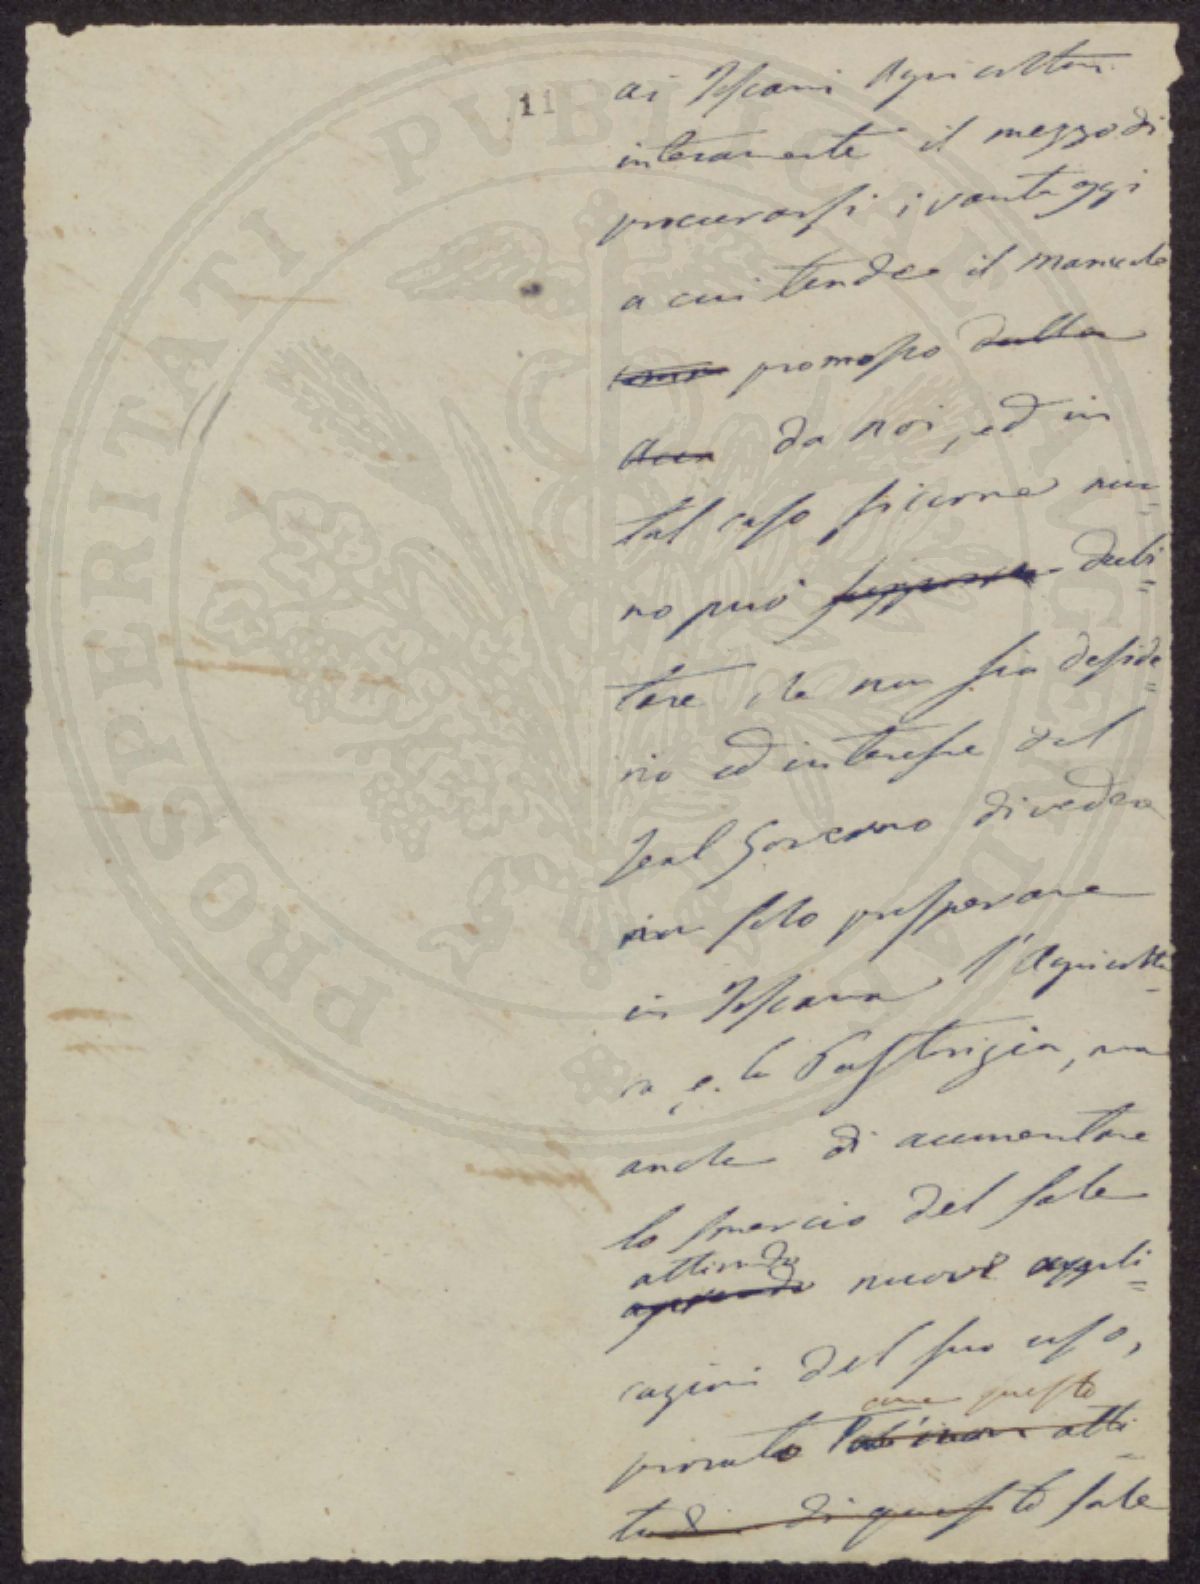 11
ai Toscani Agricoltori
interamente il mezzo di
procurarsi i vantaggi
a cui tende il manuale
promosso dalla
da noi, ed in
tal caso siccome niu=
no può supporre dubi=
tare che non sia deside=
rio ed interesse del
Real Governo di vedere
non solo prosperare
in Toscana l'Agricoltu=
ra e la Pastorizia, ma
anche di aumentare
lo smercio del sale
attivando
aprendo nuove appli=
cazioni del suo uso,
come questo
provato atti=
tudi di questo sale
PROSPERITATI PVBLICAE AVGENDAE